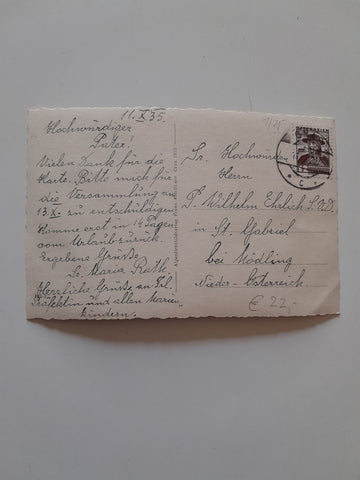 11.X.35.
Hochwürdiger
Pater!
Vielen Dank für die
Karte. Bitte mich für
die Versammlung am
13.X. zu entschuldigen,
komme erst in 14 Tagen
vom Urlaub zurück.
Ergebene Grüße,
Sr. Maria Rath.
Herzliche Grüße an Frl.
Präfektin und allen Marien-
kindern.
Sr. Hochwürden
Herrn
P. Wilhelm Ehrlich S.V.D.
in St. Gabriel
bei Mödling
Nieder-Österreich.
€ 22,-